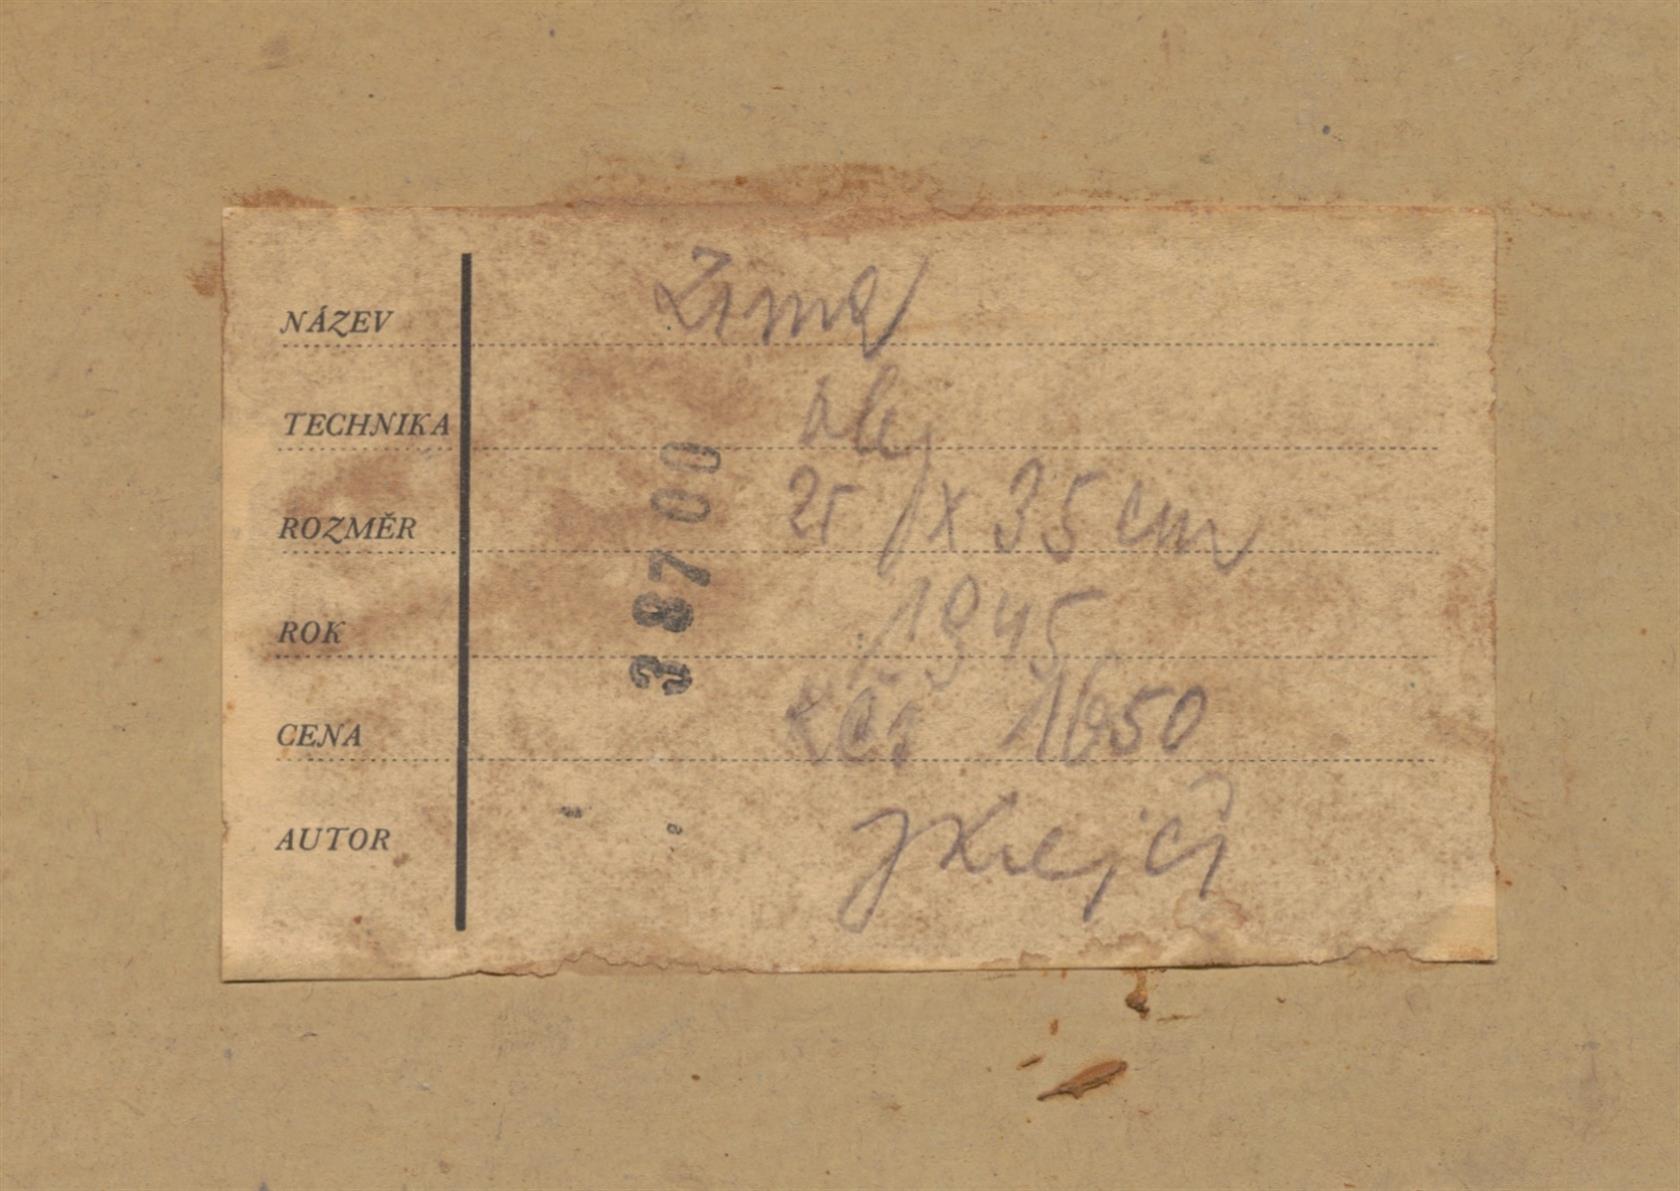 NÁZEV Zima
TECHNIKA olej
ROZMĚR 25 x 35 cm
ROK 1945
CENA Kčs 1650
AUTOR J Krejčí
38700